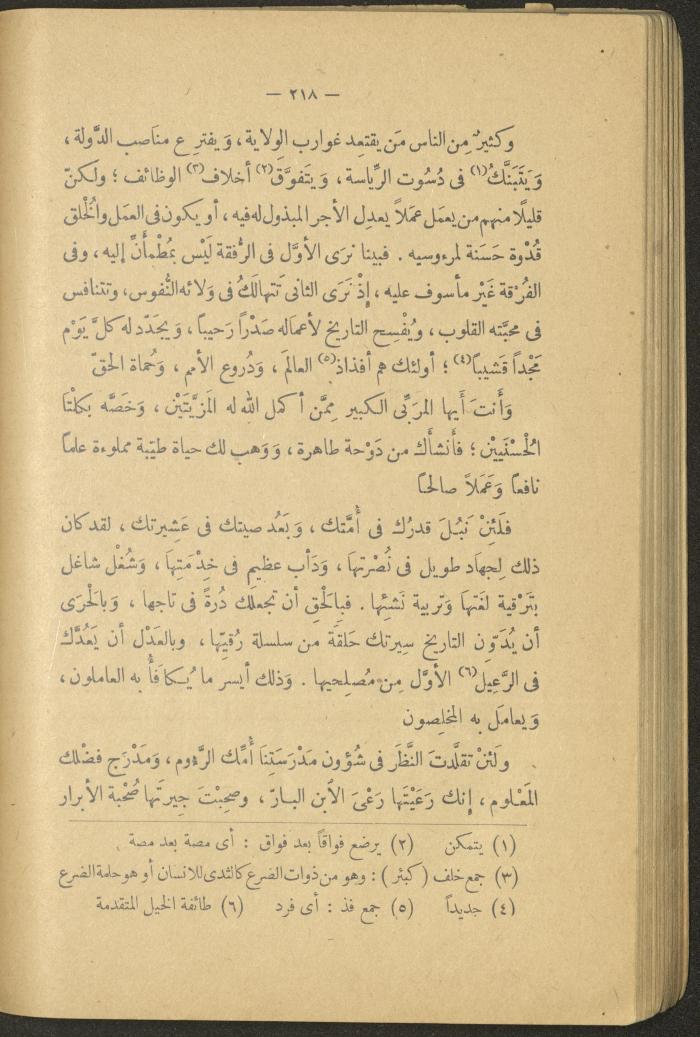 — ٢١٨ —
وكثيرٌ مِن الناس مَن يقتعِد غوارب الولاية، وَيفترِع مناَصب الدَّولة،
وَيَتَبَنَّكُ(١) فى دُسُوت الرِّياسة، وَيتَفوَّقَ(٢) أخلاف(٣) الوظائف؛ ولكنّ
قليلًا منهم من يعمَل عمَلاً يعدِل الأجر المبذول له فيه، أو يكون فى العمَل والخُلق
قُدْوة حَسَنة لمرءوسيه. فبينا نرَى الأوَّل فى الرُّفقة لَيْس بمُطْمأنٍّ إليه، وفى
الفُرْقة غَيْر مأسوف عليه، إذْ نَرَى الثانى تَتهالَكُ فى وَلائه النُّفوس، وتتنافس
فى محبَّته القلوب، ويُفْسِح التاريخ لأعماله صَدْراً رَحيباً، وَيجَدّد له كلَّ يَوْم
مَجْداً قَشيباً(٤)؛ أولئك هم أفذاذ(٥) العالمَ، وَدُروع الأمم، وَحُماة الحقّ
وَأَنتَ أيها المرَبِّى الكبير مِمَّن أكمل الله له المَزيَّتَيْن، وَخَصَّه بكلْتَا
الحُسْنَيين؛ فأَنشأَك من دَوْحة طاهرة، وَوَهب لك حياة طيّبة مملوءة علماً
نافعاً وَعَمَلاً صالحاً
فلَئِنْ نَبُلَ قدرُك فى أُمَّتك، وَبَعُد صيتك فى عَشيرتك، لقدكان
ذلك لِجهاد طويل فى نُصْرتها، وَدَأب عظيم فى خِدْمَتِها، وَشُغْل شاغل
بتَرْقية لغَتها وَتربية نَشئِها. فبِالَحق أن تجعلك دُرةً فى تاجها، وَبالحَرَى
أن يُدَوّن التاريخ سِيرتك حَلقَة من سلسلة رُقيّها، وبالعَدْل أن يَعُدَّك
فى الرَّعِيل(٦) الأوَّل مِن مُصلِحيها. وَذلك أيسر ما يُكافَأُ به العاملون،
وَيعامَل به المخلِصون
وَلَئنْ تقلَّدتَ النَّظَر فى شُؤون مَدْرَسَتِنَا أمِّك الرَّءوم، وَمَدْرَج فضْلك
المَعْلوم، إنك رَعَيْتَها رَعْىَ الأبن البارّ، وصحِبْتَ جِيرتَها صُحْبة الأبرار
(١) يتمكن (٢) يرضع فواقاً بعد فواق : أى مصة بعد مصة
(٣) جمع خلف (كبئر): وهو من ذوات الضرع كالثدى للانسان أو هو حلمة الضرع
(٤) جديداً (٥) جمع فذ : أى فرد (٦) طائفة الخيل المتقدمة